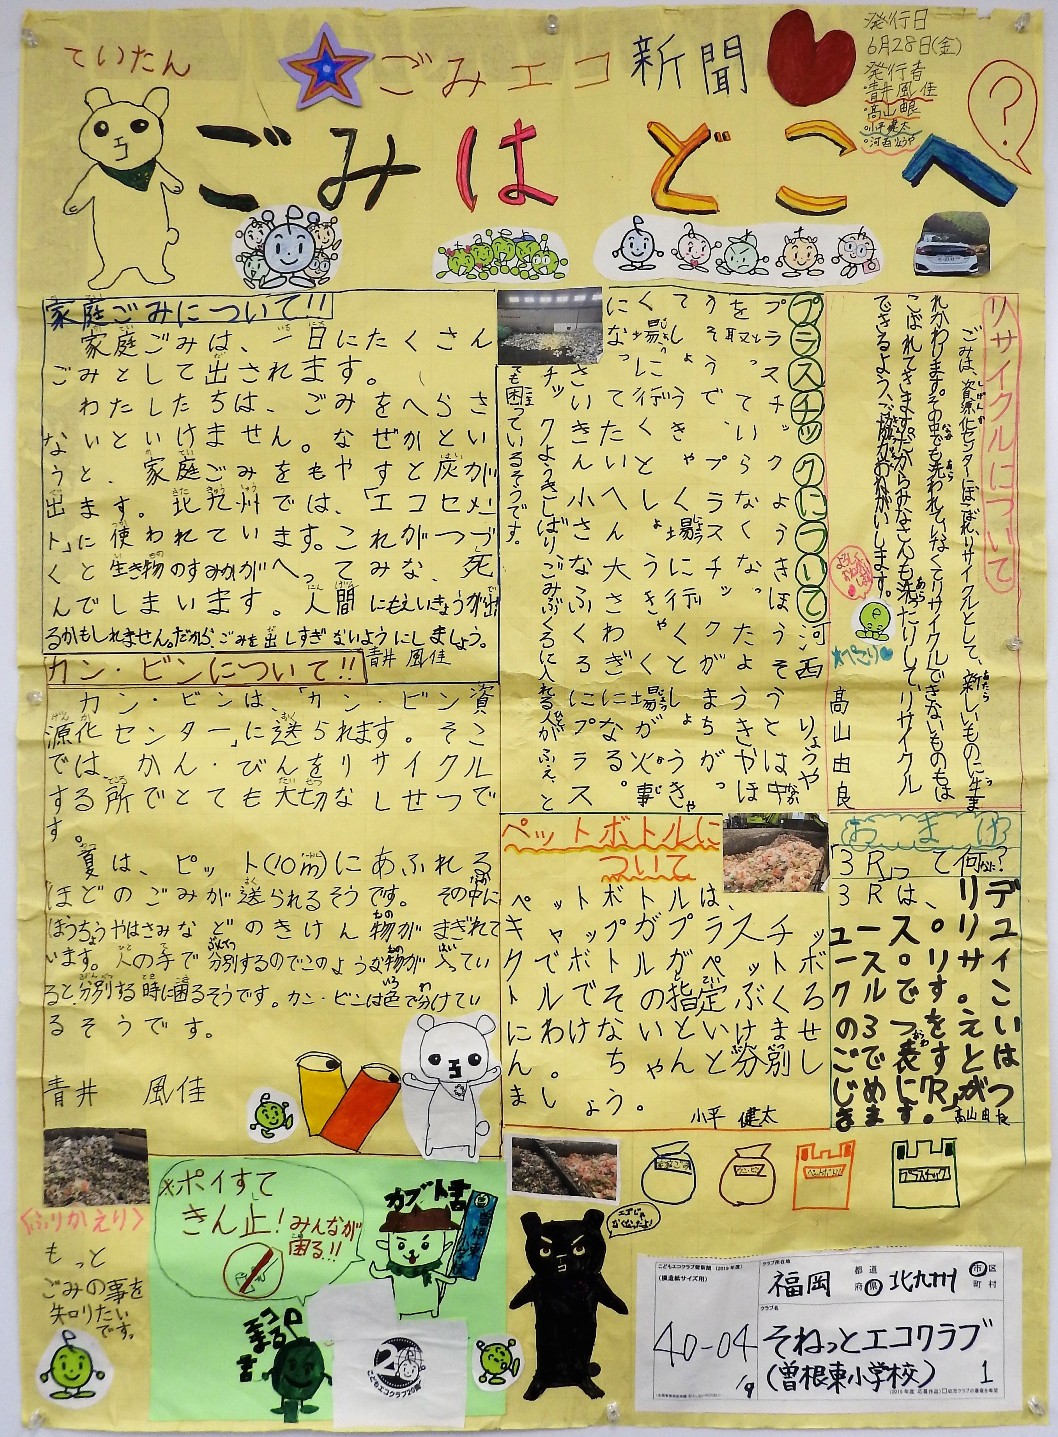 ていたん
ごみエコ新聞
発行日
6月28日(金)
発行者
・青井風佳
・高山由良
・小平健太
・河西りょうや
?
ごみはどこへ
家庭ごみについて!!
家庭ごみは、一日にたくさん
ごみとして出されます。
わたしたちは、ごみをへらさ
ないといけません。なぜかとい
うと、家庭ごみをもやすと灰が
出ます。北九州では、「エコセメン
ト」に使われています。これがつづ
くと生き物のすみかがへってみな、死
んでしまいます。人間にもえいきょうが出
るかもしれません。だから、ごみを出しすぎないようにしましょう。
青井風佳
カン・ビンについて!!
カン・ビンは、「カン・ビン資
源化センター」に送られます。そこ
では、かん・びんをリサイクル
する所でとても大切なしせつで
す。
夏は、ピット(10m)にあふれる
ほどのごみが送られるそうです。その中に
ほうちょうやはさみなどのきけん物がまぎれて
います。人の手で分別するのでこのような物が入ってい
ると分別する時に困るそうです。カン・ビンは色で分けてい
るそうです。
青井 風佳
リサイクルについて
ごみは、資源化センターにはこばれリサイクルとして、新しいものに生ま
れかわります。その中でも洗われていなくてリサイクルできないものもは
こばれてきます。だからみなさんも洗ったりして、リサイクル
できるよう、ご協力おねがいします。
高山由良
ぺこり
プラスチックについて
河西 りょうや
プラスチックようきほうそうとは中
を取っていらなくなったようきやほ
うそうで、プラスチックがまちがっ
てしょうきゃく場に行くとしょうきゃ
く場に行くとしょうきゃく場が火事
になってたいへん大さわぎになる。
さいきん小さなふくろにプラス
チックようきしばりごみぶくろに入れる人がふえ、と
ても困っているそうです。
ペットボトルに
ついて
ペットボトルは、
キャップがプラスチッ
クでボトルがペットボ
トルでその指定ぶくろ
にわけないといけませ
ん。ちゃんと分別し
ましょう。
小平 健太
おまけ
「3R」って何?
3Rは、リデ
ュース。リユ
ース。リサイ
クルです。こ
の3つをえい
ごで表すとは
じめに「R」がつ
きます。
高山由良
<ふりかえり>
もっと
ごみの事を
知りたい
です。
*ポイすて
きん止!
みんなが
困る!!
カブト君
曽根東
こどもエコクラブ20周
ペットボトル
プラスチック
こどもエコクラブ壁新聞 (2019年度)
(模造紙サイズ用)
40-04
クラブ所在地
福岡 都道府県 北九州 市区町村
クラブ名
そねっとエコクラブ
(曽根東小学校) 1